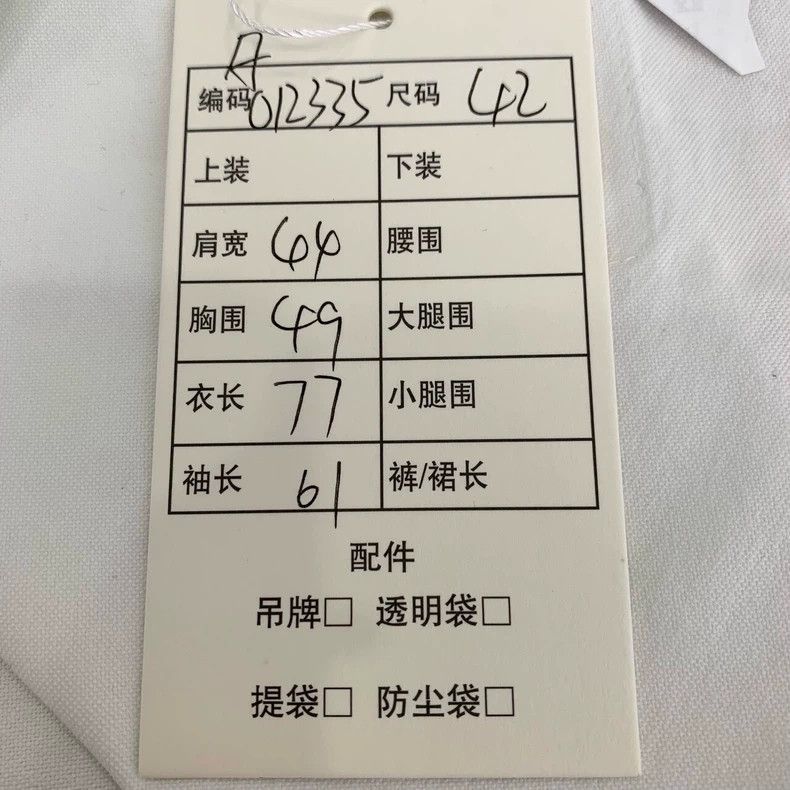 A
编码 012335 尺码 42
上装 下装
肩宽 44 腰围
胸围 49 大腿围
衣长 77 小腿围
袖长 61 裤/裙长
配件
吊牌□ 透明袋□
提袋□ 防尘袋□